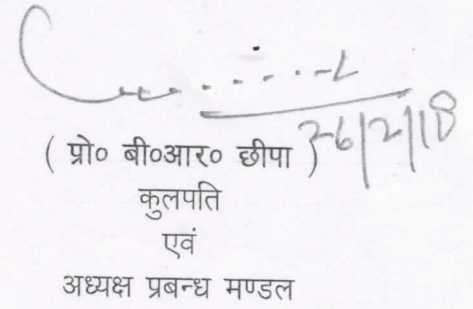 26/2/18
( प्रो० बी०आर० छीपा )
कुलपति
एवं
अध्यक्ष प्रबन्ध मण्डल